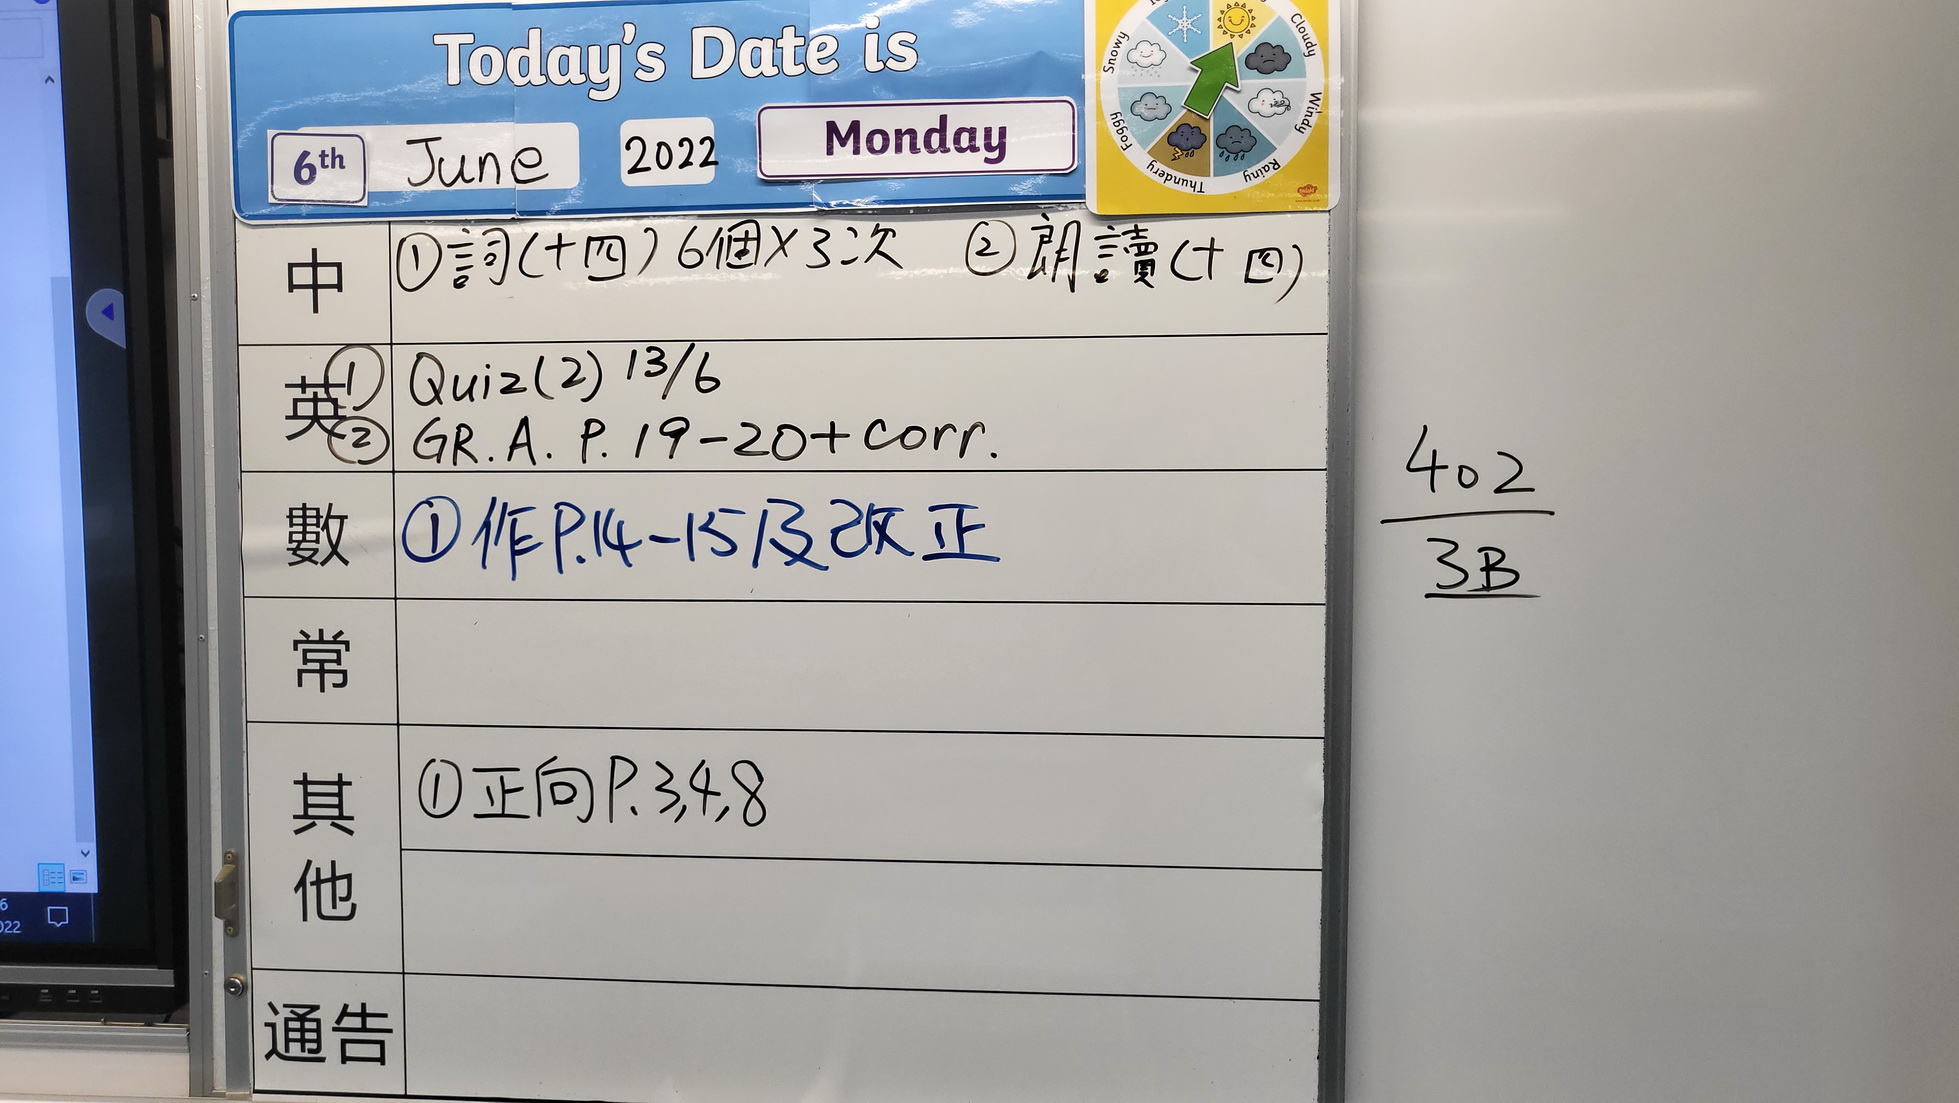 Today's Date is
6th June 2022 Monday
Snowy
Cloudy
Windy
Rainy
Thundery
Foggy
中 ①詞(十四)6個X3次 ②朗讀(十四)
英 ① Quiz(2) 13/6
② GR. A. P. 19-20+corr.
數 ①作P.14-15及改正
常
其他 ①正向P.3,4,8
通告
402
3B
6
022